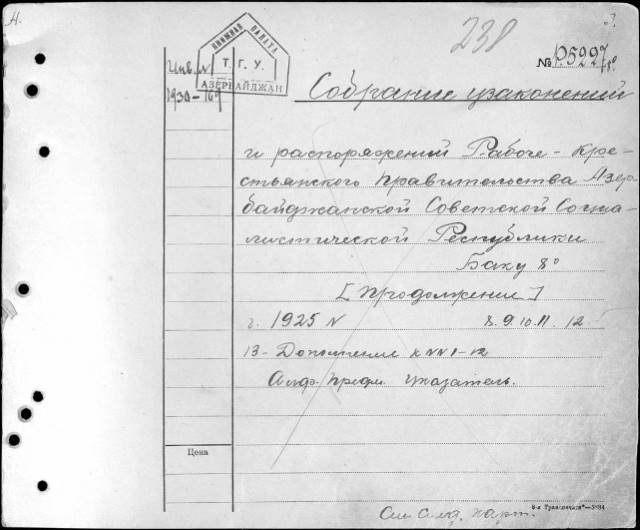 238
№ Р.5227
КНИЖНАЯ ПАЛАТА
Т. Г. У.
АЗЕРБАЙДЖАН
Инв. N
1930-169
Собрание узаконений
и распоряжений Рабоче-Кре-
стьянского Правительства Азер
байджанской Советской Социа-
листической Республики
Баку 8°
[Продолжение]
г. 1925 N 8. 9. 10. 11. 12.
13- Дополнение к NN 1-12
Алф. предм. указатель.
Цена